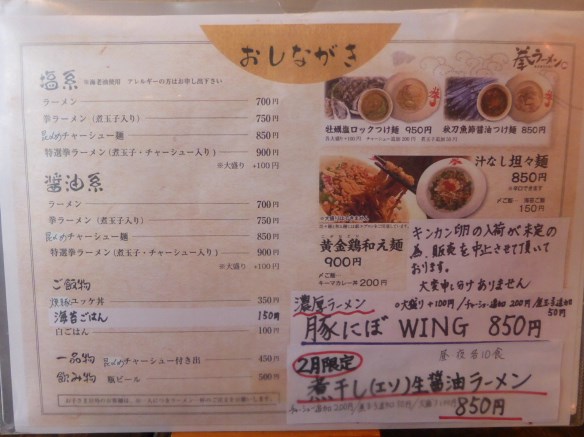 おしながき
塩系
ラーメン 700円
拳ラーメン(煮玉子入り) 750円
チャーシュー麺 850円
特選拳ラーメン(煮玉子・チャーシュー入り) 900円
※大盛り +100円
醤油系
ラーメン 700円
拳ラーメン(煮玉子入り) 750円
チャーシュー麺 850円
特選拳ラーメン(煮玉子・チャーシュー入り) 900円
※大盛り +100円
ご飯物
ユッケ丼 350円
海苔ごはん 150円
白ごはん 100円
一品物 チャーシュー付き出 450円
飲み物 瓶ビール 500円
拳ラーメン
牡蠣塩ロックつけ麺 950円
秋刀魚節醤油つけ麺 850円
汁なし担々麺
850円
150円
黄金鶏和え麺
900円
〆ご飯…
キーマカレー丼 200円
キンカン卵の入荷が未定の
為、販売を中止させて頂いて
おります。
大変申し分けありません
濃厚ラーメン
○大盛り+100円/チャーシュー追加200円/煮玉子追加50円
豚にぼ WING 850円
昼夜各10食
2月限定
煮干し(エソ)生醤油ラーメン
850円